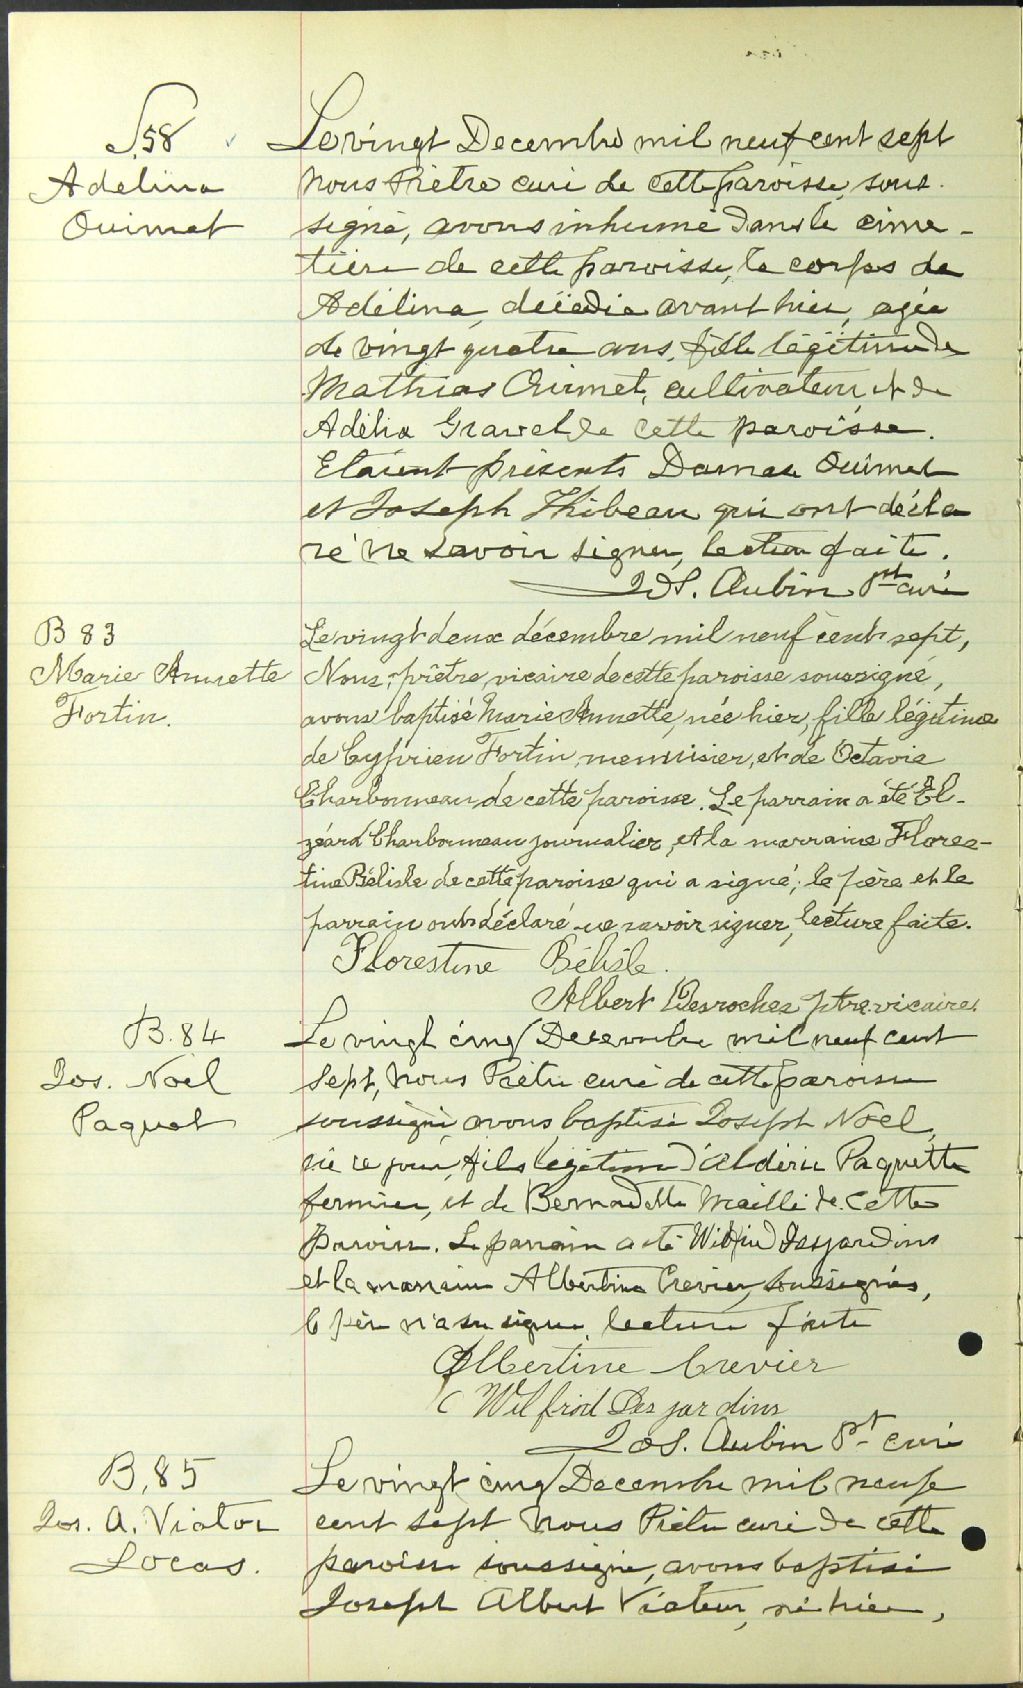 S.58
Adélina
Ouimet
Le vingt Decembre mil neuf cent sept
Nous Prêtre curé de cette paroisse, sous-
signé, avons inhumé dans le cime-
tière de cette paroisse, le corps de
Adélina, décédée avant hier, agée
de vingt quatre ans, fille légitime de
Mathias Ouimet, cultivateur, et de
Adélia Gravel de cette paroisse.
Etaient présents Damase Ouimet
et Joseph Thibeau qui ont décla
ré ne savoir signer, lecture faite.
Jos. Aubin Pt curé
B 83
Marie Annette
Fortin.
Le vingt-deux décembre mil neuf cent sept,
Nous, prêtre, vicaire de cette paroisse soussigné,
avons baptisé Marie Annette, née hier, fille légitime
de Cyprien Fortin, menuisier, et de Octavie
Charbonneau de cette paroisse. Le parrain a été El-
zéard Charbonneau journalier, et la marraine Flores-
tine Bélisle de cette paroisse qui a signé; le père et le
parrain ont déclaré ne savoir signer, lecture faite.
Florestine Bélisle.
Albert Desroches ptre. vicaire.
B. 84
Jos. Noël
Paquet
Le vingt cinq Decembre mil neuf cent
sept, Nous Prêtre curé de cette paroisse
soussigné, avons baptisé Joseph Noël,
né ce jour, fils légitime d'Aldéric Paquette
fermier, et de Bernadette Maillé de cette
Paroisse. Le parrain a été Wilfrid Desjardins
et la marraine Albertine Crevier, soussignés,
le père n'a su signer, lecture faite
Albertine Crevier
Wilfrid Desjardins
Jos. Aubin Pt curé
B. 85
Jos. A. Viator
Locas.
Le vingt cinq Decembre mil neuf
cent sept Nous Prêtre curé de cette
paroisse soussigné, avons baptisé
Joseph Albert Viateur, né hier,